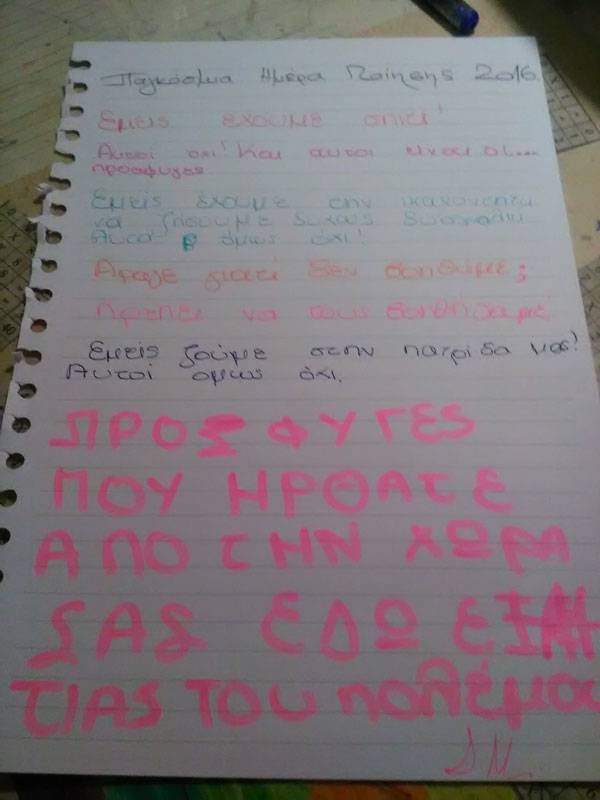 Παγκόσμια Ημέρα Ποίησης 2016.
Εμείς έχουμε σπίτι!
Αυτοί όχι! Και αυτοί είναι οι....
πρόσφυγες
Εμείς έχουμε την ικανότητα
να ζήσουμε δίχως δυσκολία
Αυτοί όμως όχι!
Άραγε γιατί δεν βοηθούμε;
Πρέπει να τους βοηθήσουμε!
Εμείς ζούμε στην πατρίδα μας!
Αυτοί όμως όχι.
ΠΡΟΣΦΥΓΕΣ
ΠΟΥ ΗΡΘΑΤΕ
ΑΠΟ ΤΗΝ ΧΩΡΑ
ΣΑΣ ΕΔΩ ΕΞΑΙ
ΤΙΑΣ ΤΟΥ πολέμου